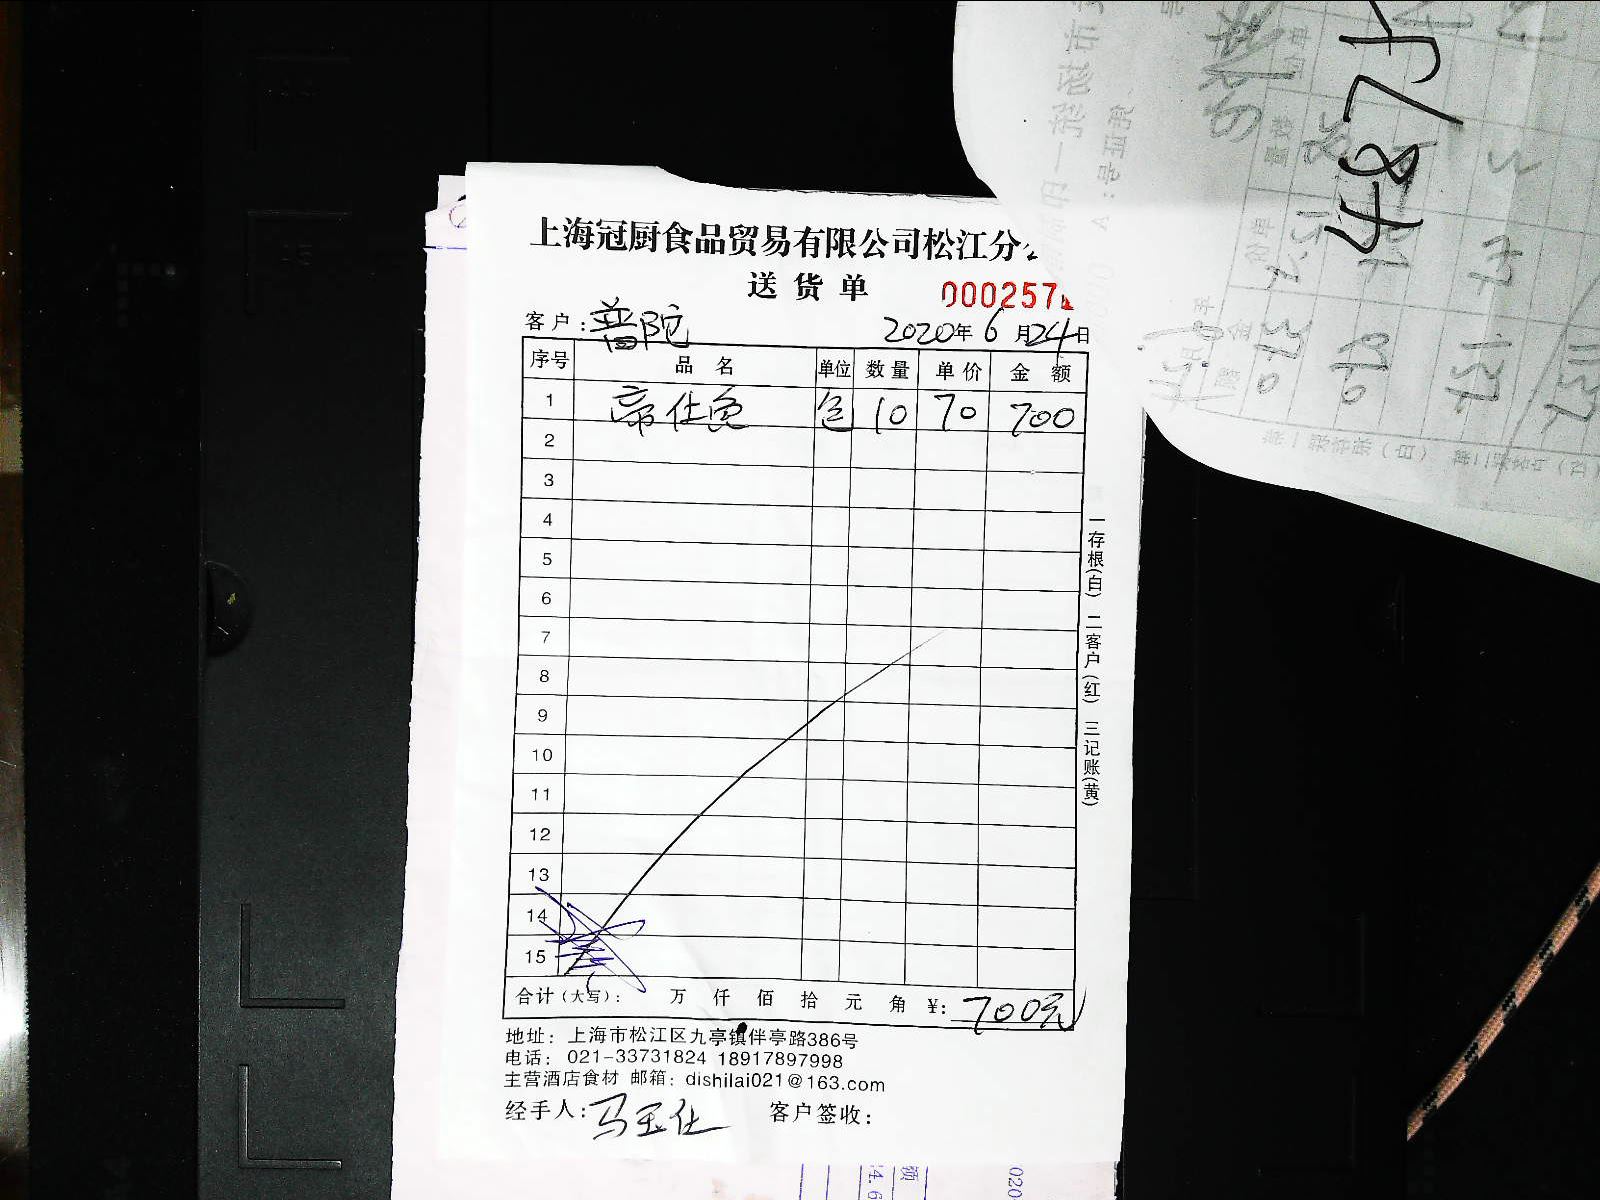 上海冠厨食品贸易有限公司松江分
送货单 000257
客户: 普陀 2020年6月24日
序号 品名 单位 数量 单价 金额
1 帝仕鱼 包 10 70 700
2
3
4
5
6
7
8
9
10
11
12
13
14
15
合计(大写): 万 仟 佰 拾 元 角 ¥: 700元
地址: 上海市松江区九亭镇伴亭路386号
电话: 021-33731824 18917897998
主营酒店食材 邮箱: dishilai021@163.com
经手人: 马玉仕 客户签收:
一存根(白) 二客户(红) 三记账(黄)
487